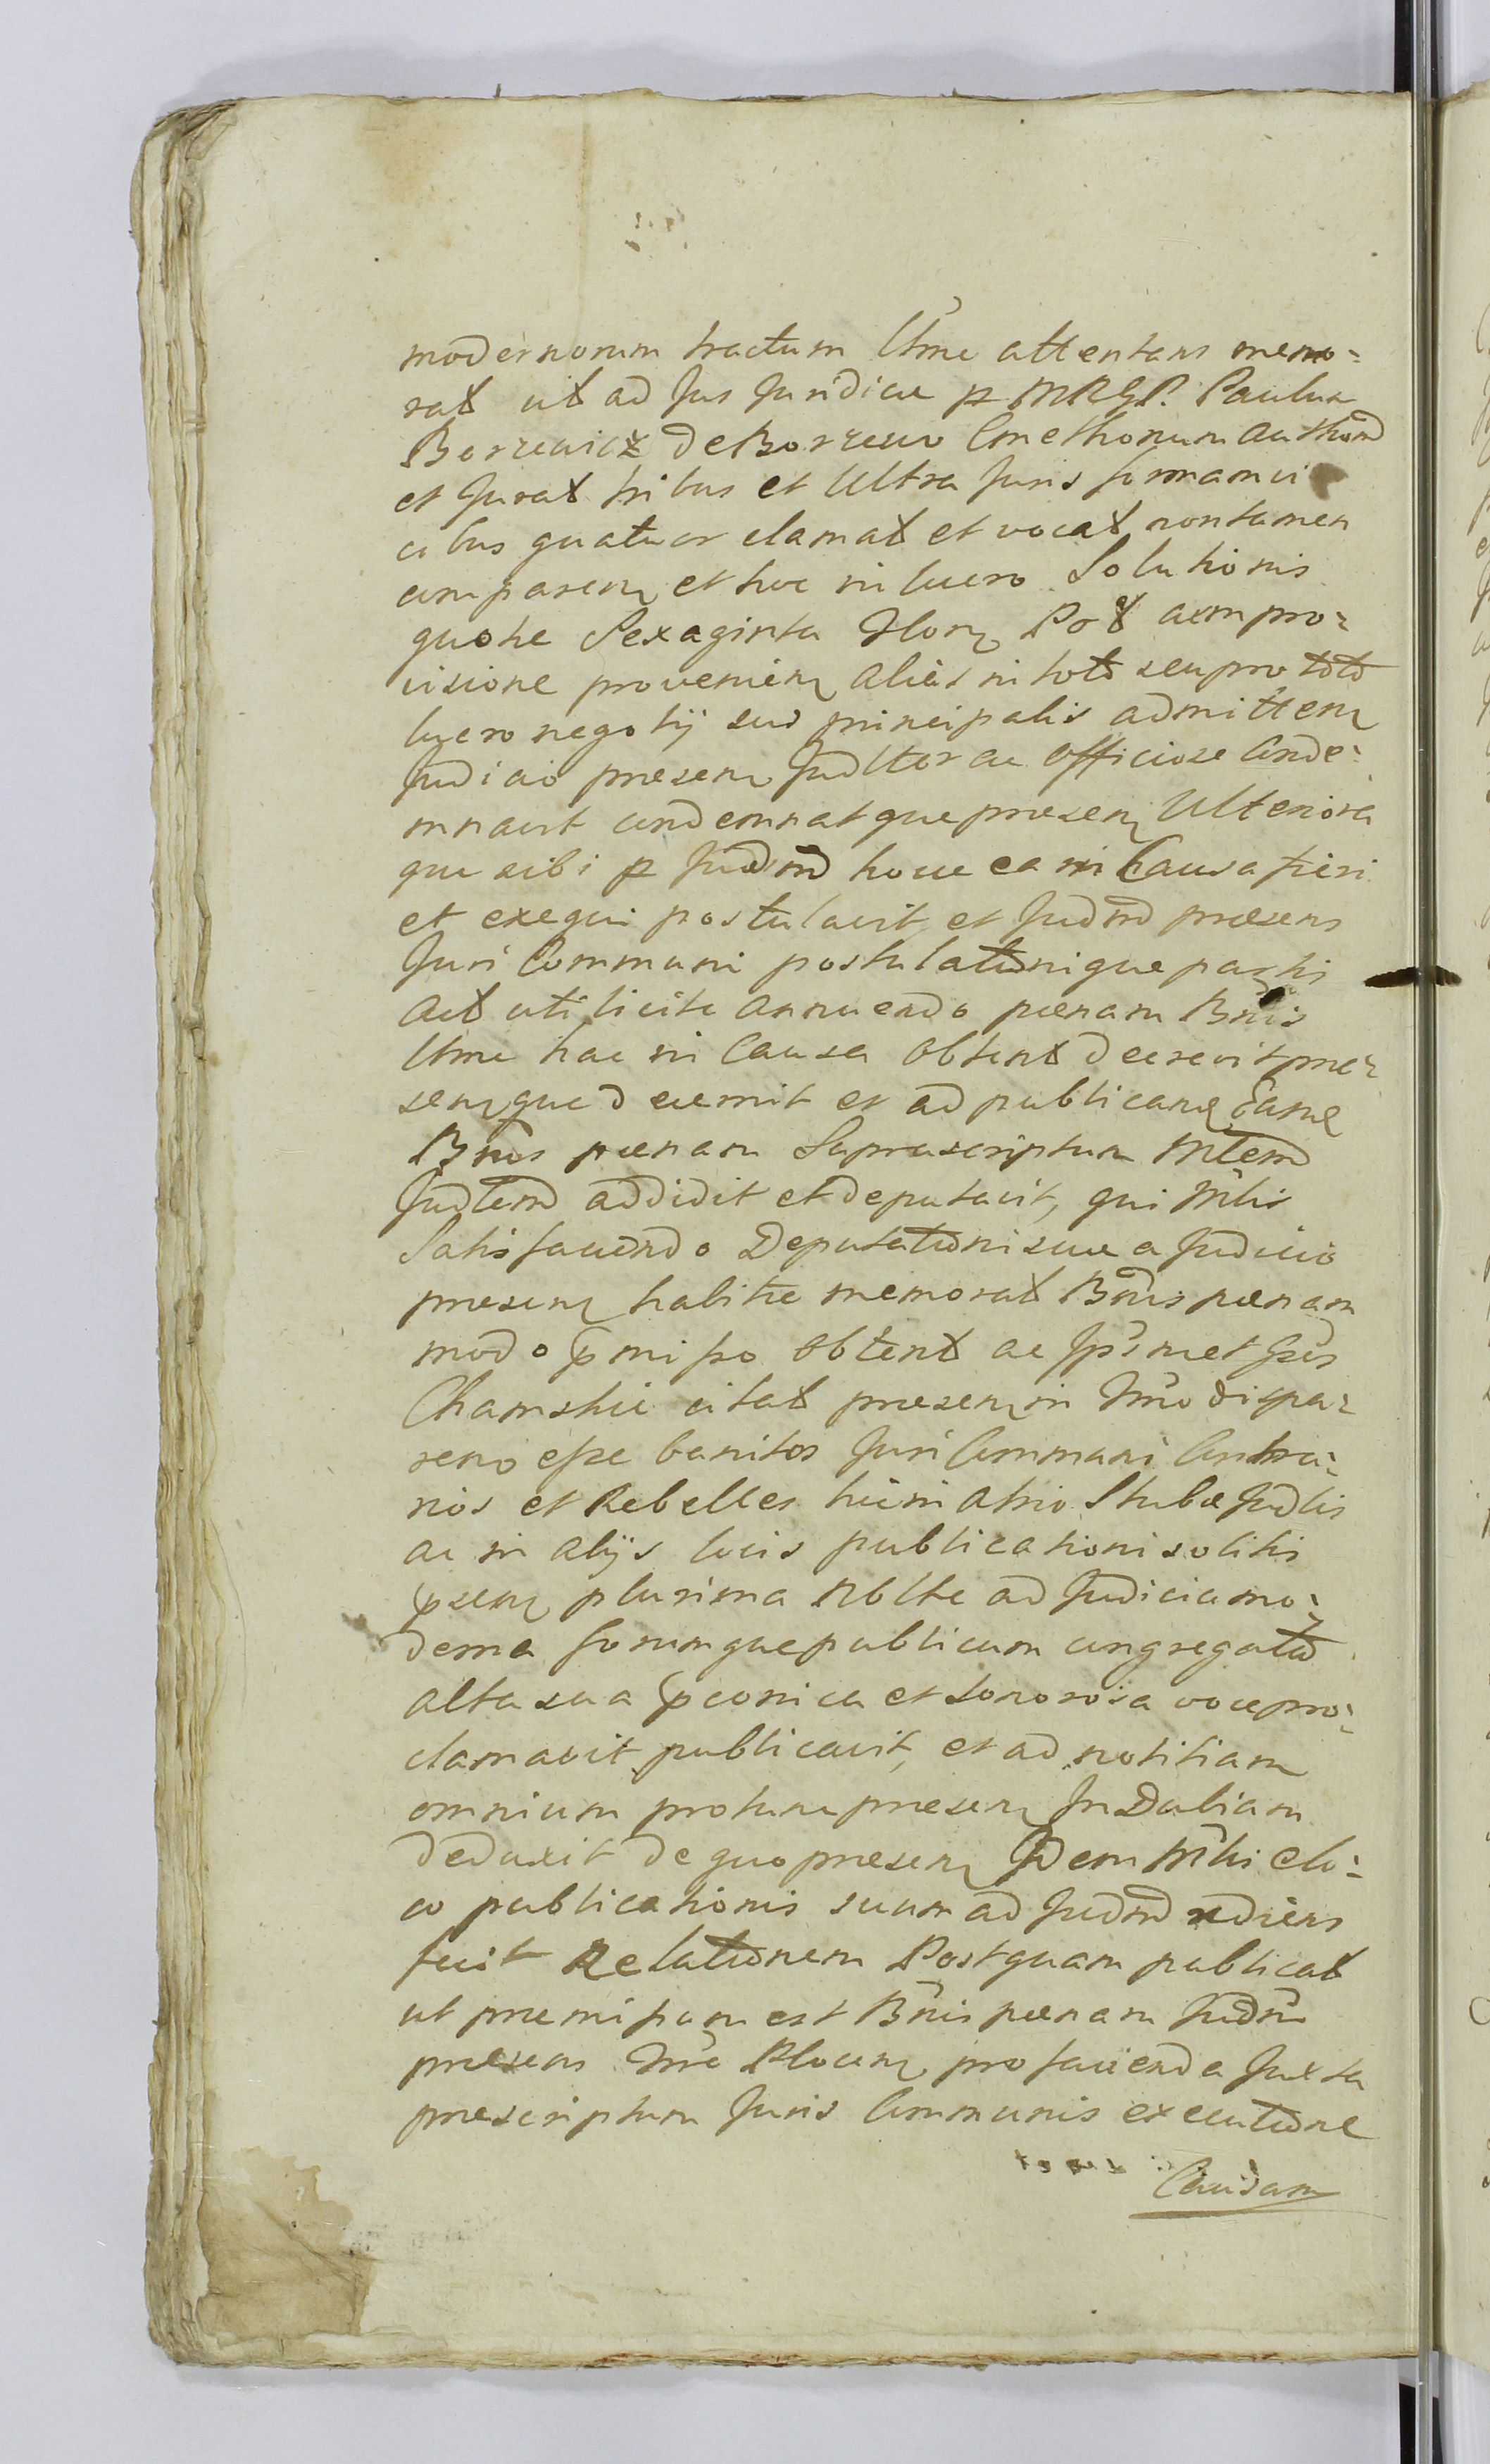 modernorum tractum Ulme attentans memo=
rat cit ad Jus Juridice p MRGP. Paulum
Borzewicz de Borzewo Cmethonum authord
et Jurat tribus et Ultra Juris formam vi
cibus quatuor clamat et vocat non tamen
comparen et hoc in lucro Solutionis
quotae Sexaginta Flor Pol a compro=
visione provenien alias in toto seu pro toto
lucro negotij sui principalis admitten
Judicio praesen Juditer ac officiose Conde=
mnavit condemnatque praesen Ulteriora
que sibi p Judm hocce ea in Causa fieri
et exequi postulavit, et Judm praesens
Juri Communi postulationique partis
Act uti licite annuendo poenam Bnis
Ulme hac in Causa obtent decrevit prae=
senque decernit et ad publicand Eand
Bnis poenam Suprascriptum Mtem
Judtem addidit et deputavit, qui Mlis
Satisfaciendo Deputationi suae a Judicio
praesen habitae memorat Bnis poenam
modo pmisso obtent ac Ipsmet Gsis
Chamskie citat praesen in Tmo dispa=
reno esse banitos Juri Communi Contra=
rios et Rebelles hic in atrio Stubae Judlis
ac in alijs locis publicationi solitis
psen plurima Nblte ad Judicia mo=
derna forumque publicum congregata
alta sua pconica et sonorosa voce pro=
clamavit publicavit, et ad notitiam
omnium protunc praesen In Dubiam
deduxit de quo praesen Idem Mlis e lo=
co publicationis suum ad Judm rediens
fecit Relationem Postquam publicat
ut praemissum est Bnis poenam Judm
praesens Tme Plocen pro facienda Juxta
praescriptum Juris Communis executione
Causam